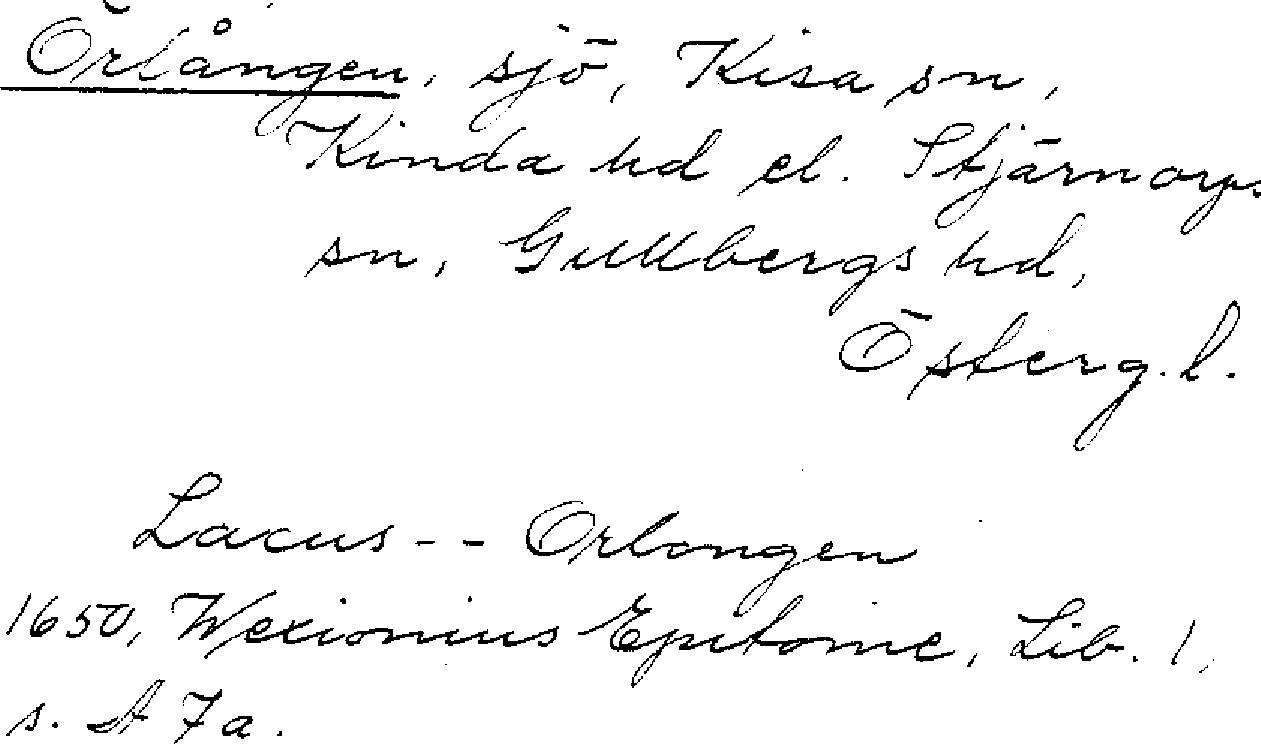 Örlången, sjö, Kisa sn,
Kinda hd el. Stjärnorps
sn, Gullbergs hd,
Österg. l.
Lacus -- Orlongen
1650, Wexionius Epitome, Lib. 1,
s. A 7a.